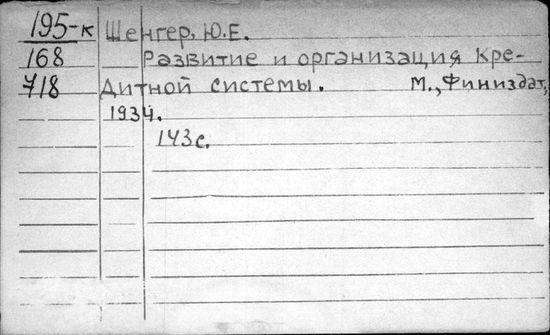 195-к Шенгер, Ю.Е.
168 Развитие и организация кре-
718 дитной системы. М., Финиздат,
1934.
143с.